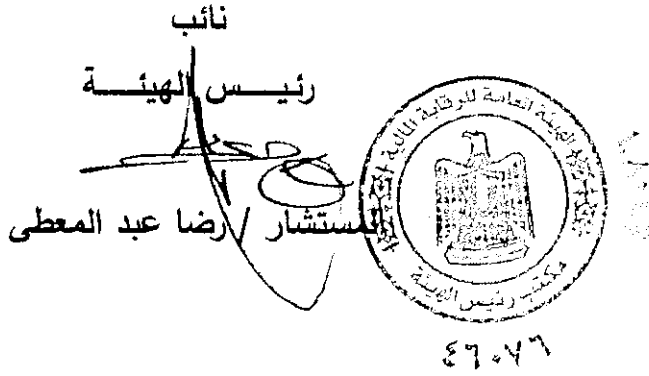 نائب
رئيـــس الهيئـــة
المستشار / رضا عبد المعطى
الهيئة العامة للرقابة المالية
مكتب رئيس الهيئة
٤٦٠٧٦